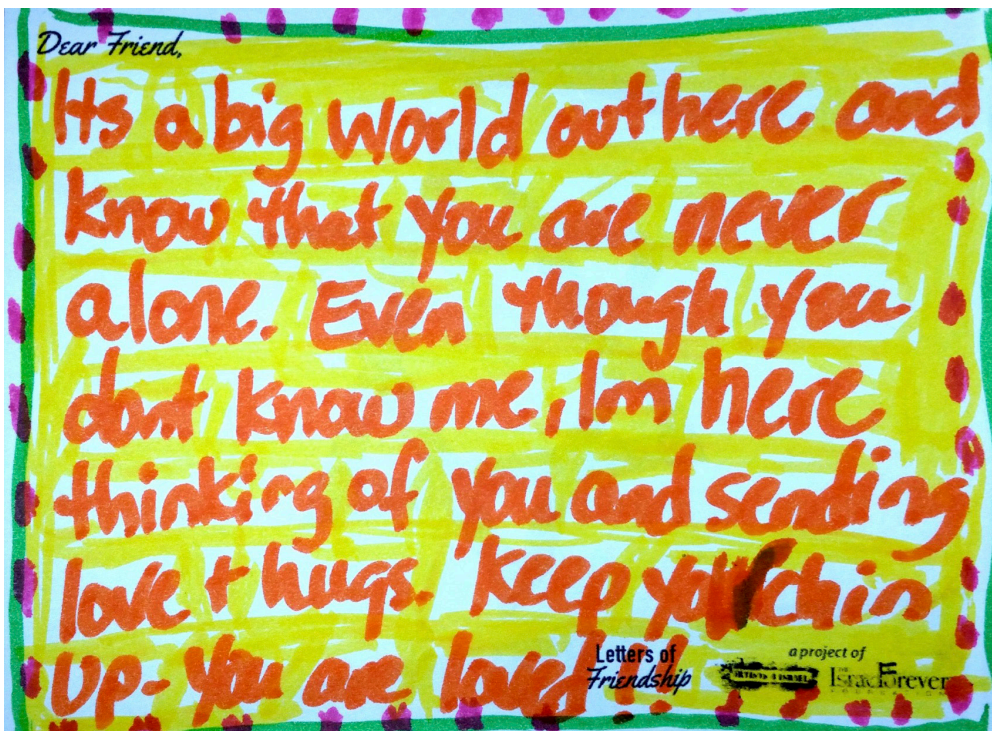 Dear Friend,
Its a big World out here and
know that you are never
alone. Even though you
dont know me, Im here
thinking of you and sending
love + hugs. Keep your chin
up- You are loved
Letters of
Friendship
a project of
ARTISTS 4 ISRAEL
THE
IsraelForever
FOUNDATION